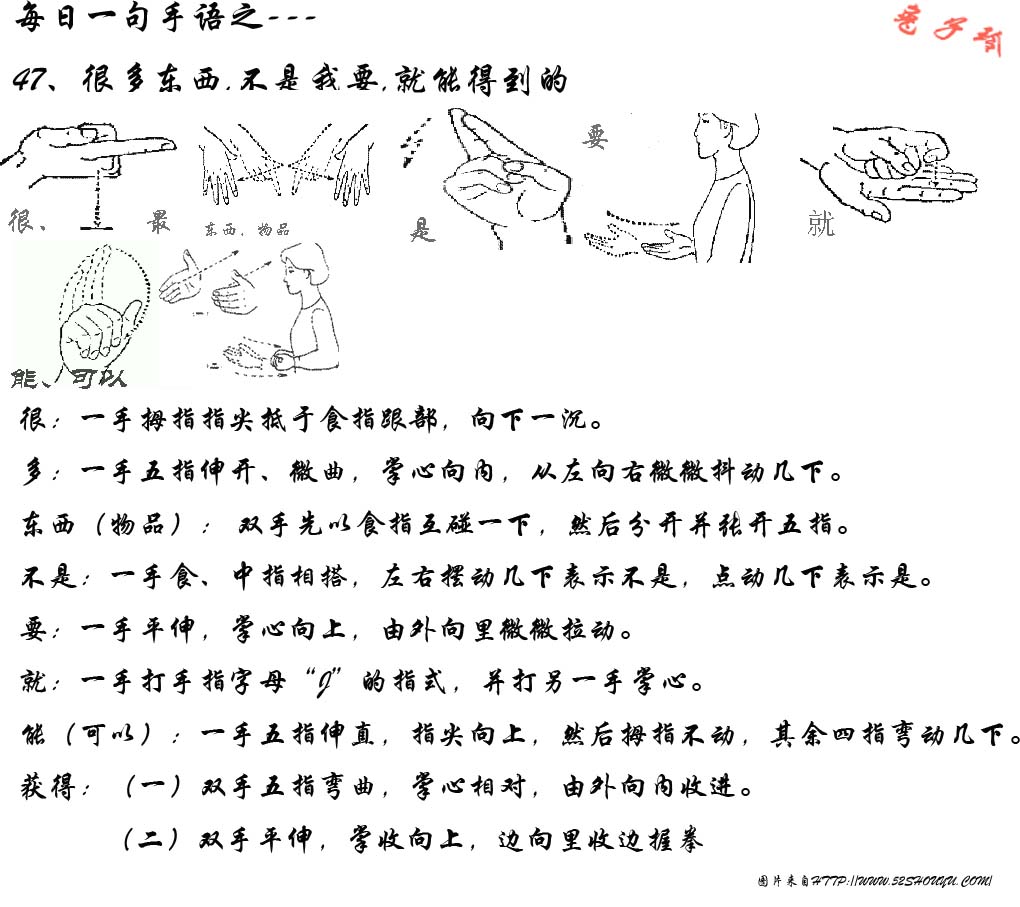 每日一句手语之---
兔子哥
47、很多东西,不是我要,就能得到的
很、 最
东西、物品
是
要
就
能、可以
很：一手拇指指尖抵于食指跟部，向下一沉。
多：一手五指伸开、微曲，掌心向内，从左向右微微抖动几下。
东西（物品）：双手先以食指互碰一下，然后分开并张开五指。
不是：一手食、中指相搭，左右摆动几下表示不是，点动几下表示是。
要：一手平伸，掌心向上，由外向里微微拉动。
就：一手打手指字母“J”的指式，并打另一手掌心。
能（可以）：一手五指伸直，指尖向上，然后拇指不动，其余四指弯动几下。
获得：（一）双手五指弯曲，掌心相对，由外向内收进。
（二）双手平伸，掌收向上，边向里收边握拳
图片来自HTTP://WWW.52SHOUYU.COM/